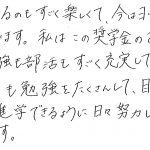 るのもすごく楽しくて、今はヨ
ます。私はこの奨学金の
強も部活もすごく充実して
も勉強をたくさんして、目
進学できるように日々努力し
す。